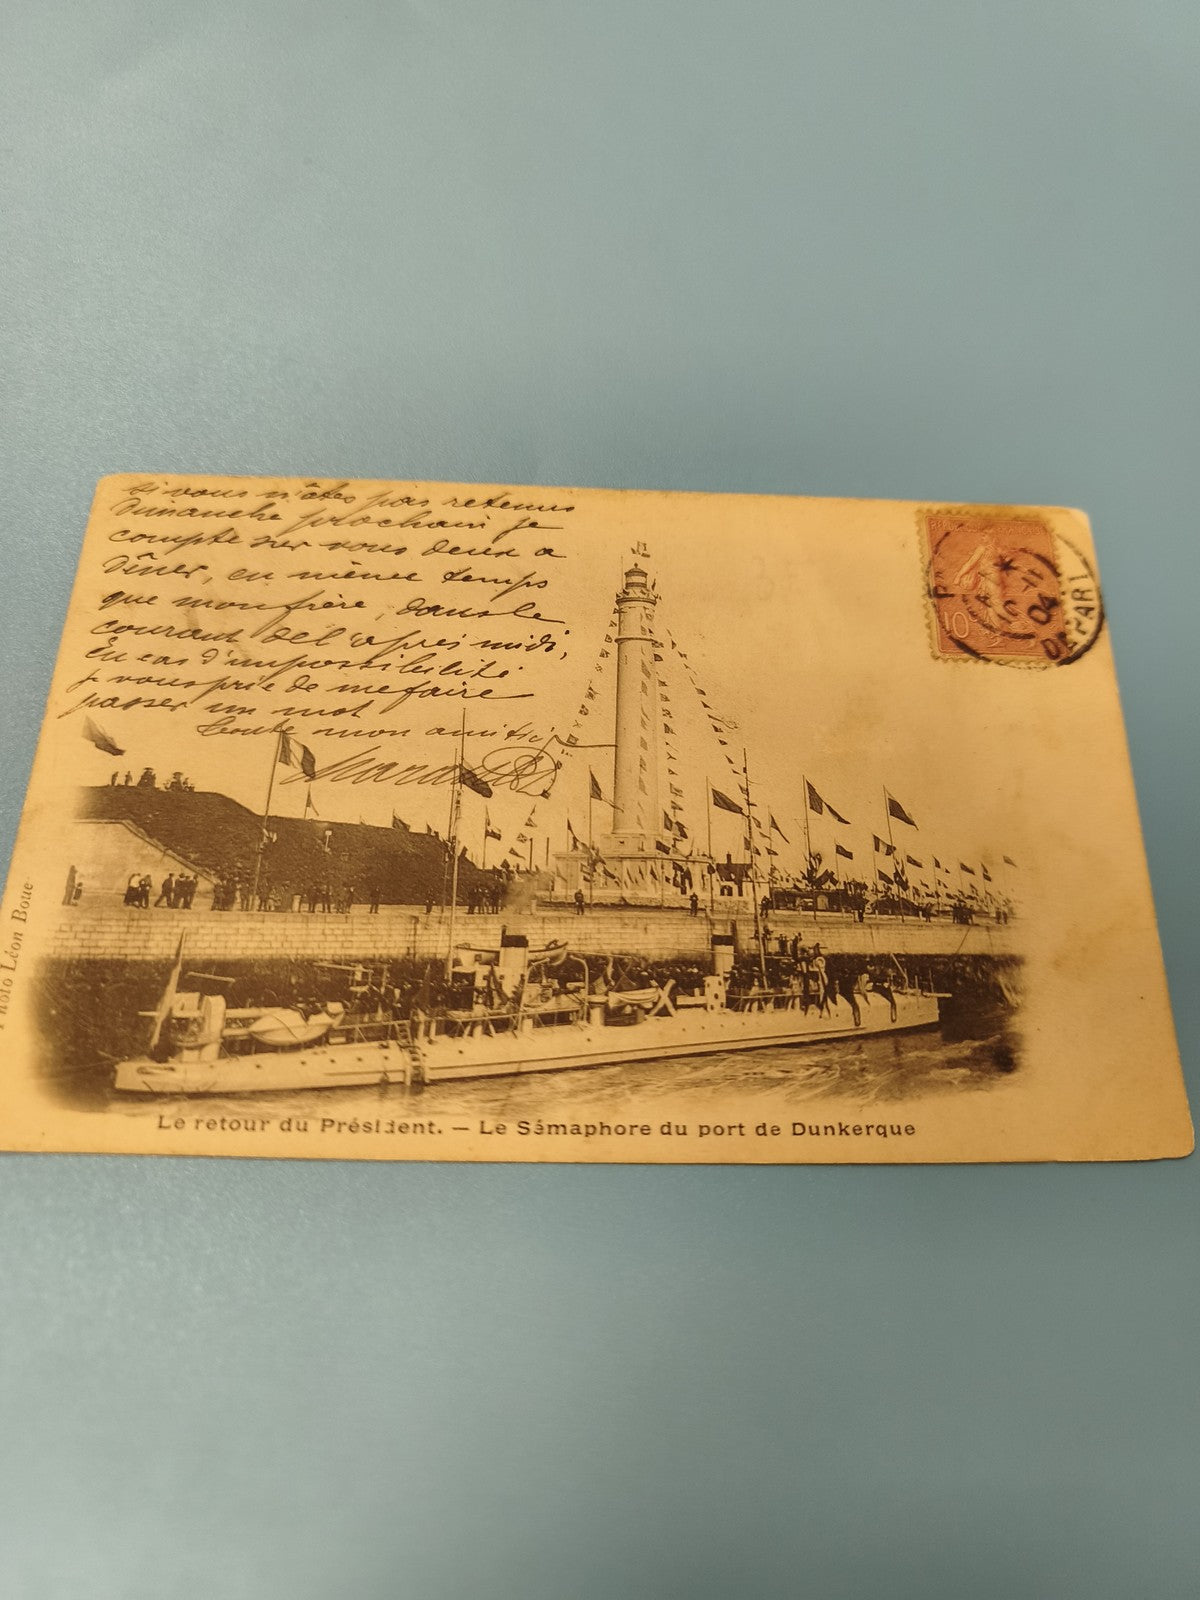 si vous n'êtes pas retenus
Dimanche prochain je
compte sur vous deux a
Dîner, en même temps
que mon frère, dans le
courant del'après midi,
En cas d'impossibilité
je vous prie de me faire
passer un mot
Toute mon amitié
REPUBLIQUE
10
10 -11
04
DEPART
Photo Léon Boue
Le retour du Président. — Le Sémaphore du port de Dunkerque